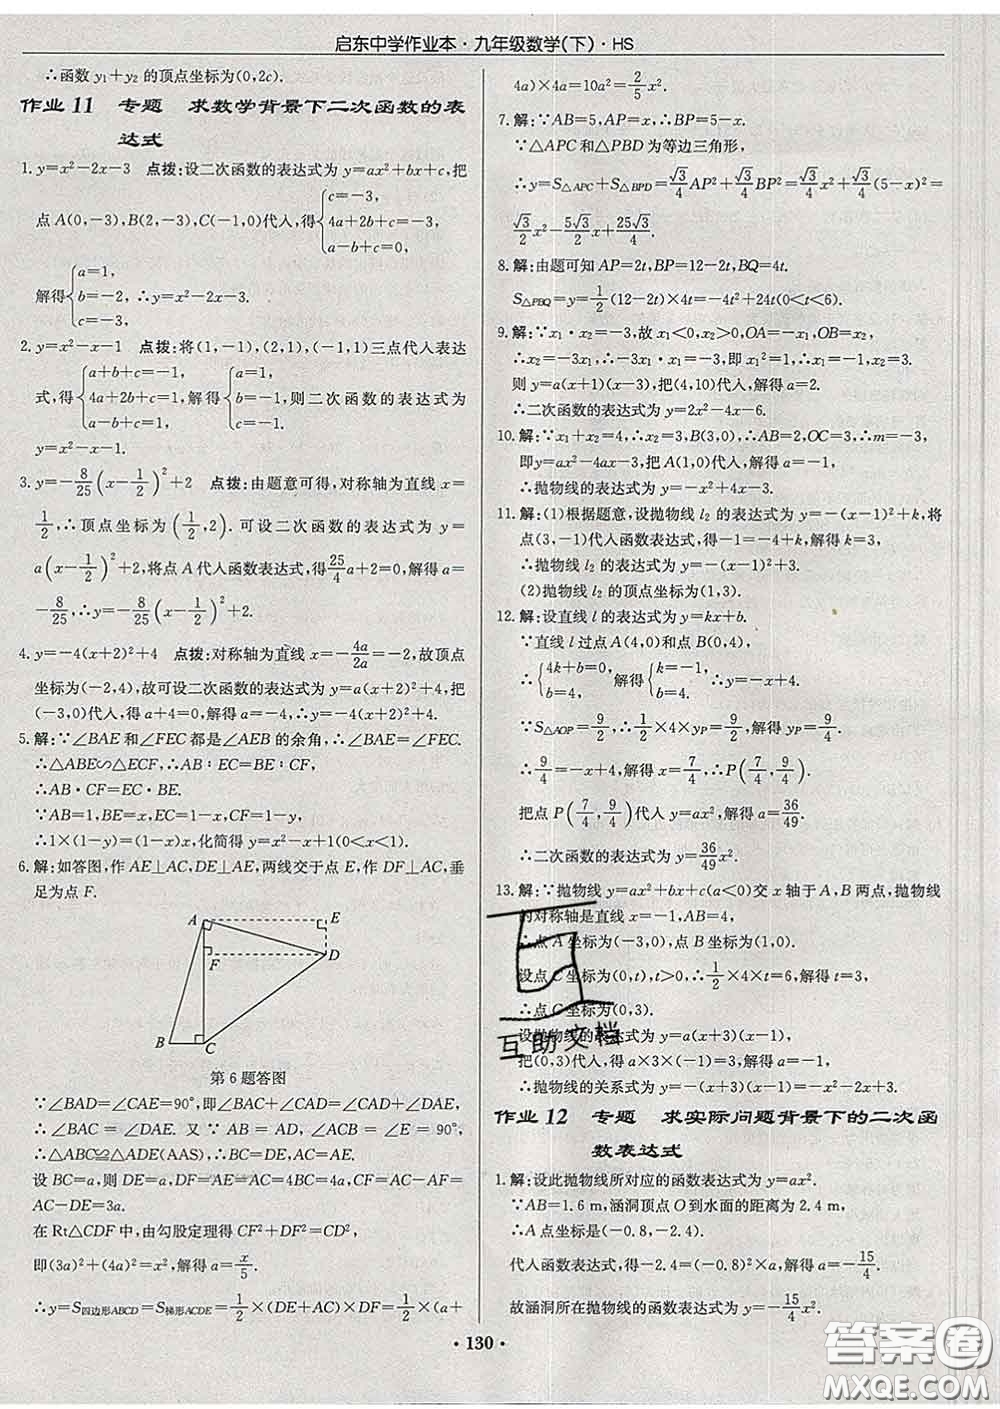 启东中学作业本·九年级数学(下)·HS
∴函数 y₁+y₂ 的顶点坐标为(0,2c).
作业 11　专题　求数学背景下二次函数的表
达式
1. y=x²-2x-3　点拨:设二次函数的表达式为 y=ax²+bx+c,把
点 A(0,-3),B(2,-3),C(-1,0)代入,得{c=-3, 4a+2b+c=-3, a-b+c=0,
解得{a=1, b=-2, c=-3, ∴y=x²-2x-3.
2. y=x²-x-1　点拨:将(1,-1),(2,1),(-1,1)三点代入表达
式,得{a+b+c=-1, 4a+2b+c=1, a-b+c=1, 解得{a=1, b=-1, c=-1. 则二次函数的表达式为
y=x²-x-1.
3. y=-8/25(x-1/2)²+2　点拨:由题意可得,对称轴为直线 x=
1/2,∴顶点坐标为(1/2,2).可设二次函数的表达式为 y=
a(x-1/2)²+2,将点 A 代入函数表达式,得25/4a+2=0,解得 a=
-8/25,∴y=-8/25(x-1/2)²+2.
4. y=-4(x+2)²+4　点拨:对称轴为直线 x=-4a/2a=-2,故顶点
坐标为(-2,4),故可设二次函数的表达式为 y=a(x+2)²+4,把
(-3,0)代入,得 a+4=0,解得 a=-4,∴y=-4(x+2)²+4.
5. 解:∵∠BAE 和∠FEC 都是∠AEB 的余角,∴∠BAE=∠FEC.
∴△ABE∽△ECF,∴AB∶EC=BE∶CF,
∴AB·CF=EC·BE.
∵AB=1,BE=x,EC=1-x,CF=1-y,
∴1×(1-y)=(1-x)x,化简得 y=x²-x+1(0<x<1).
6. 解:如答图,作 AE⊥AC,DE⊥AE,两线交于点 E,作 DF⊥AC,垂
足为点 F.
A
E
F
D
B
C
第 6 题答图
∵∠BAD=∠CAE=90°,即∠BAC+∠CAD=∠CAD+∠DAE,
∴∠BAC=∠DAE. 又 ∵AB=AD,∠ACB=∠E=90°,
∴△ABC≌△ADE(AAS),∴BC=DE,AC=AE.
设 BC=a,则 DE=a,DF=AE=AC=4BC=4a,CF=AC-AF=
AC-DE=3a.
在 Rt△CDF 中,由勾股定理得 CF²+DF²=CD²,
即(3a)²+(4a)²=x²,解得 a=x/5.
∴y=S四边形ABCD=S梯形ACDE=1/2×(DE+AC)×DF=1/2×(a+
4a)×4a=10a²=2/5x².
7. 解:∵AB=5,AP=x,∴BP=5-x.
∵△APC 和△PBD 为等边三角形,
∴y=S△APC+S△BPD=√3/4AP²+√3/4BP²=√3/4x²+√3/4(5-x)²=
√3/2x²-5√3/2x+25√3/4.
8. 解:由题可知 AP=2t,BP=12-2t,BQ=4t.
S△PBQ=y=1/2(12-2t)×4t=-4t²+24t(0<t<6).
9. 解:∵x₁·x₂=-3,故 x₁<0,x₂>0,OA=-x₁,OB=x₂,
∴x₂=-3x₁,∴-3x₁·x₁=-3,即 x₁²=1,∴x₁=-1,∴x₂=3.
则 y=a(x+1)(x-3),把(4,10)代入,解得 a=2.
∴二次函数的表达式为 y=2x²-4x-6.
10. 解:∵x₁+x₂=4,∴x₂=3,B(3,0),∴AB=2,OC=3,∴m=-3,
即y=ax²-4ax-3,把 A(1,0)代入,解得 a=-1,
∴抛物线的表达式为 y=-x²+4x-3.
11. 解:(1)根据题意,设抛物线 l₂ 的表达式为 y=-(x-1)²+k,将
点(3,-1)代入函数表达式,得-1=-4+k,解得 k=3,
∴抛物线 l₂ 的表达式为 y=-(x-1)²+3.
(2)抛物线 l₂ 的顶点坐标为(1,3).
12. 解:设直线 l 的表达式为 y=kx+b.
∵直线 l 过点 A(4,0)和点 B(0,4),
∴{4k+b=0, b=4, 解得{k=-1, b=4. ∴y=-x+4.
∵S△AOP=9/2,∴1/2×4×yP=9/2,解得 yP=9/4.
∴9/4=-x+4,解得 x=7/4,∴P(7/4,9/4).
把点 P(7/4,9/4)代入 y=ax²,解得 a=36/49.
∴二次函数的表达式为 y=36/49x².
13. 解:∵抛物线 y=ax²+bx+c(a<0)交 x 轴于 A,B 两点,抛物线
的对称轴是直线 x=-1,AB=4,
∴点 A 坐标为(-3,0),点 B 坐标为(1,0).
设点 C 坐标为(0,t),t>0,∴1/2×4×t=6,解得 t=3,
∴点 C 坐标为(0,3).
设抛物线的表达式为 y=a(x+3)(x-1),
把(0,3)代入,得 a×3×(-1)=3,解得 a=-1,
∴抛物线的关系式为 y=-(x+3)(x-1)=-x²-2x+3.
作业 12　专题　求实际问题背景下的二次函
数表达式
1. 解:设此抛物线所对应的函数表达式为 y=ax².
∵AB=1.6 m,涵洞顶点 O 到水面的距离为 2.4 m,
∴A 点坐标是(-0.8,-2.4).
代入函数表达式,得-2.4=(-0.8)²×a,解得 a=-15/4,
故涵洞所在抛物线的函数表达式为 y=-15/4x².
·130·
互助文档
答案圈
MXQE.COM